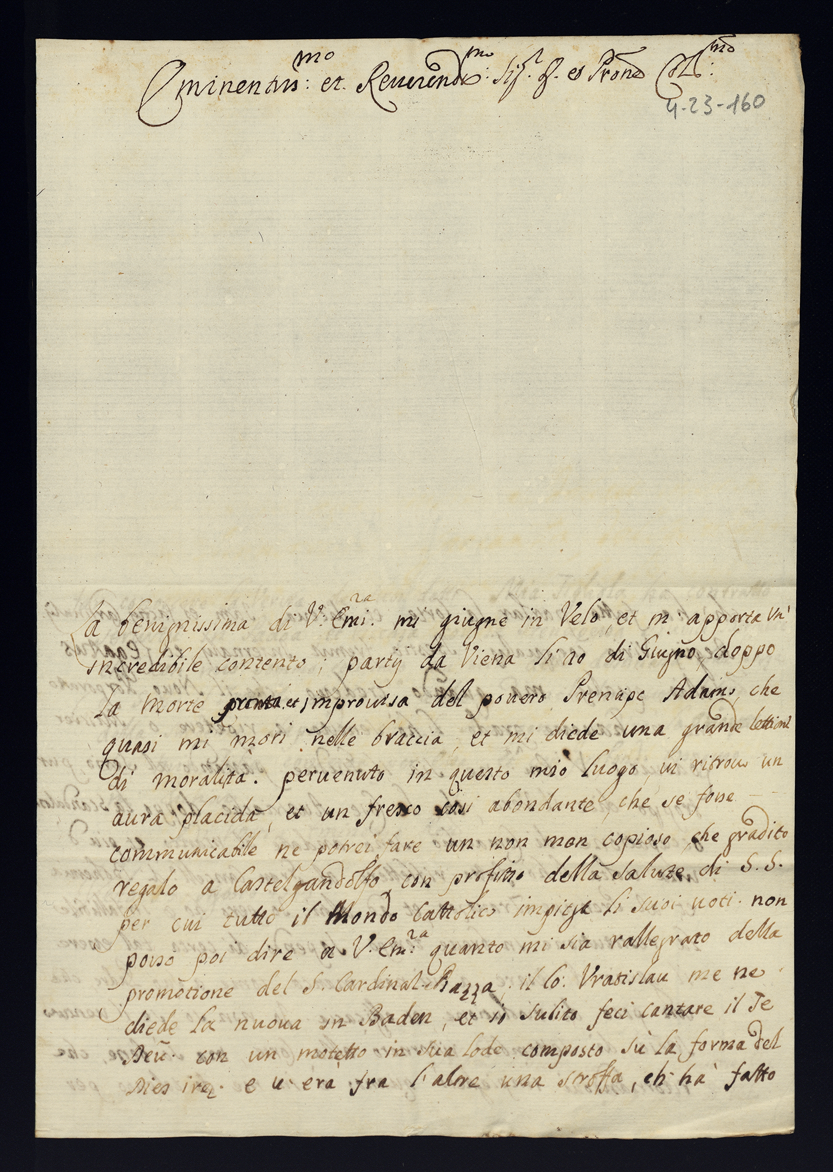 Eminentis:mo et. Reverendis:mo Sig.r P. et Prone Col:mo
4-23-160
La benignissima di V. Emi:za mi giugne in Velo, et mi apporta un'
incredibile contento; party da Viena li 20 di Giugno doppo
La Morte pronta et improuisa del pouero Prencipe Adamo, che
quasi mi morì nelle braccia, et mi diede una grande lettione
di moralità. peruenuto in questo mio luogo vi ritrouo un
aura placida, et un fresco così abondante, che se fosse
communicabile ne potrei fare un non men copioso, che gradito
regalo a Castelgandolfo con profitto della salute di S. S.
per cui tutto il Mondo Cattolico impiega li suoi uoti. non
posso poi dire a V. Em:za quanto mi sia rallegrato della
promotione del S. Cardinal il Co. Vratislau me ne
diede La nuoua in Baden, et io subito feci cantare il Te
Deũ con un motetto in sua lode composto sù la forma del
Dies iræ. e u era fra l'altre una stroffa, ch' hà fatto